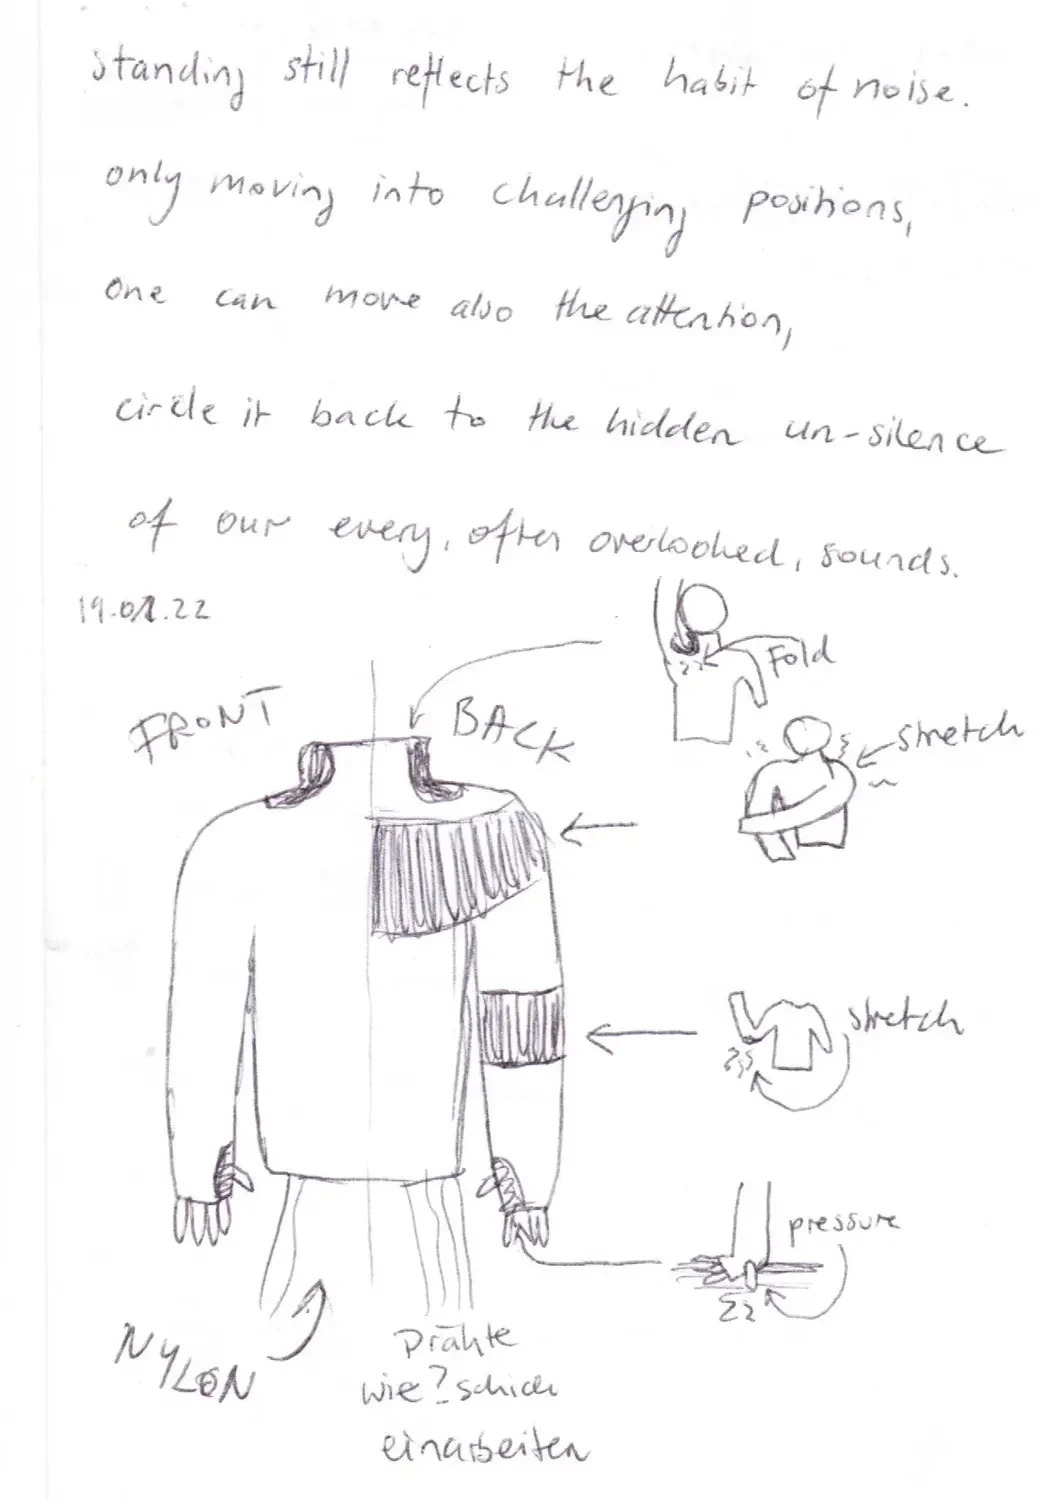 standing still reflects the habit of noise.
only moving into challenging positions,
one can move also the attention,
circle it back to the hidden un-silence
of our every, often overlooked, sounds.
19.01.22
Fold
FRONT
BACK
stretch
stretch
pressure
NYLON
Drähte
wie? schick
einarbeiten